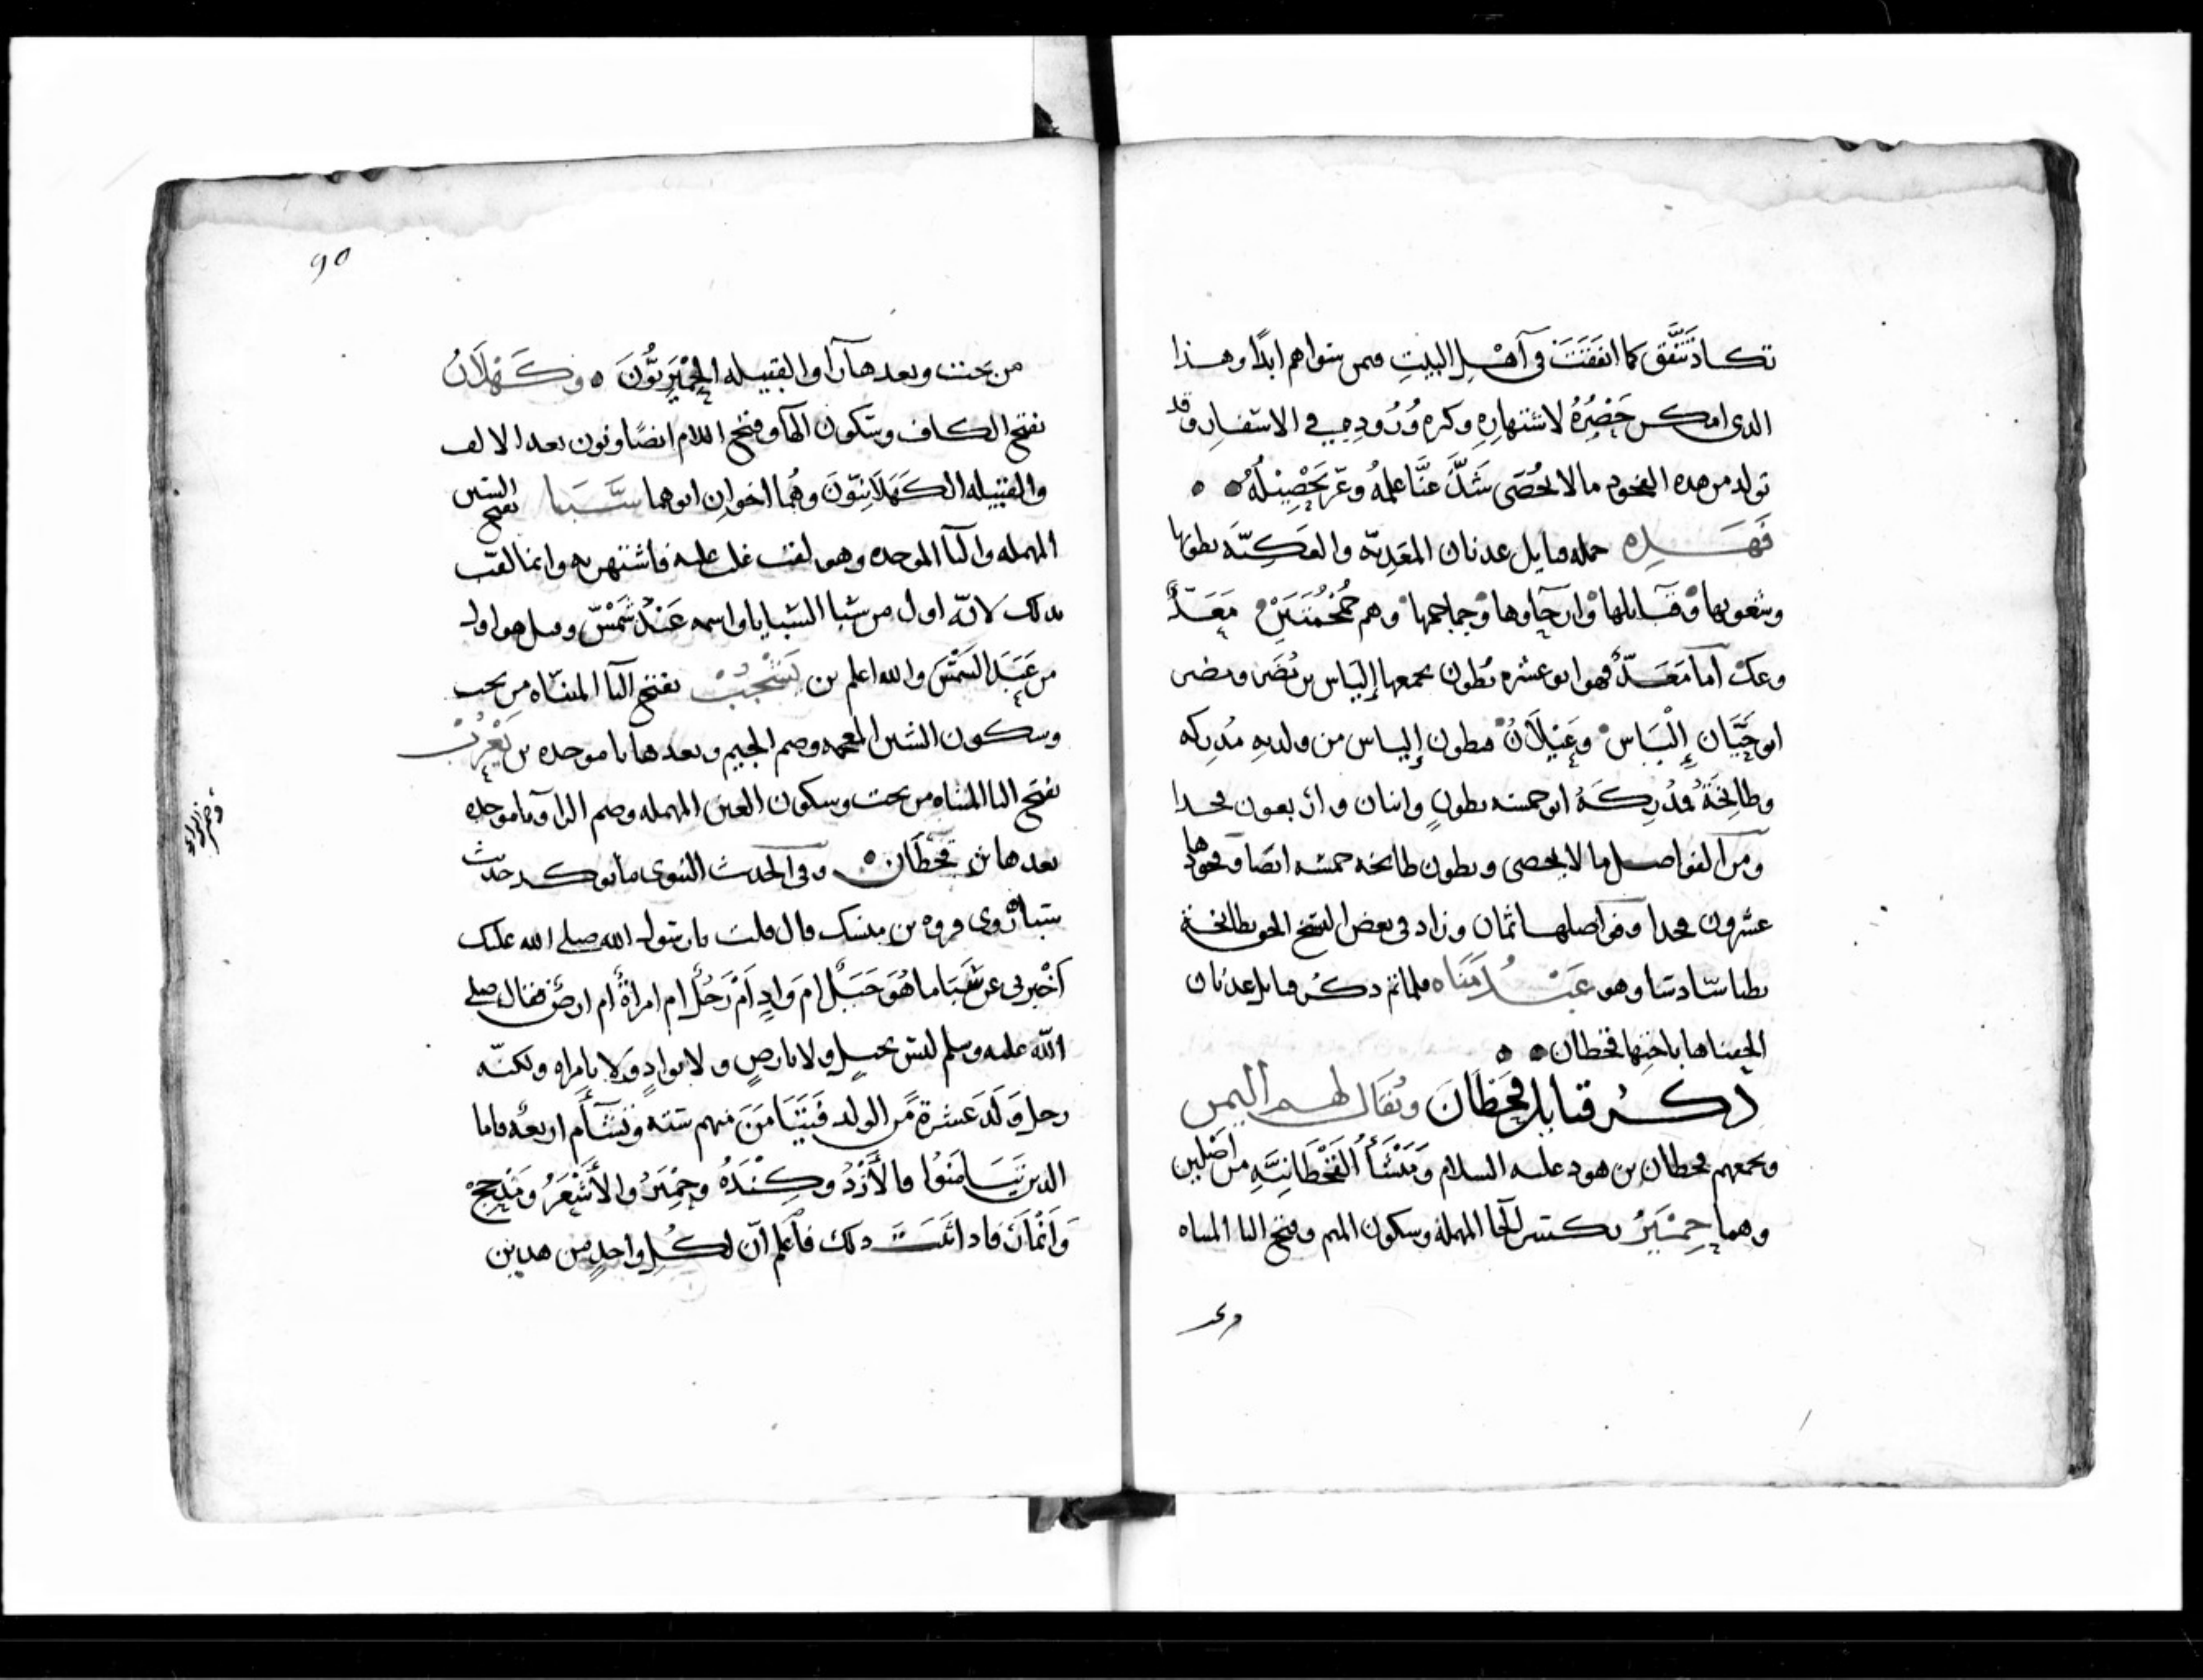 تكاد تَتَّفق كما اتفقَتْ في آهْلِ البيتِ فمن سواهم ابدًا وهذا
الذي امكن حَصْرُهُ لاشتهارِهِ وكره وُرُودِهِ في الاسفار وقد
تولد من هده الفخود ما لا يُحصَى شَذَّ عنَّا علمُهُ وعزّ تَحْصِيلُهُ
فَهَـذِه جمله قبايل عدنان المعَدِيّه والعَكِيَّه بطونها
وشعوبها وقبايلها وارحآوها وجماجمها وهم
وعك اما مَعَدّ فهو ابو عشره بُطون يجمعها إليَاس بن مُضَر ومضر
ابو حَيَّان إِلْيَاس وعَيْلَانُ فبطون إلياس من ولديه مُدركه
وطابِخَةُ مُدْرِكَةُ ابو خمسه بطونٍ واثنان واربعون فخدا
ومن الفواصل ما لا يحصى وبطون طابخه خمسه ايضا وفخوذها
عشرون فخدا وفواصلها ثمان وزاد في بعض النسخ الحق بطابخة
بطنا سّادسًا وهو عَبْدُ مَنَاه فلما تم دكر قبايل عدنان
الحقناها باختها قحطان
ذكر قبايل قحطَانَ ويُقَال لهم اليمن
ويجمعهم قحطان بن هود عليه السلام ومَنْشَأُ القَحْطَانِيَّهِ من اصْلين
وهما حِمْيَرُ بكسر الحا المهملة وسكون الميم وفتح اليا المثناه
وبعد
90
من تحت وبعدها را والقبيله الحِمْيَرِيُّونَ وكَهْلَانُ
بفتح الكاف وسكون الهآ وفتح اللام ايضًا ونون بعد الالف
والقبيله الكَهْلَانِيّون وهُما اخوان ابوهما سَبَا بفتح السين
المهمله والبآ الموحده وهو لقب غلب عليه فاشتهر به وانما لقب
بدلك لانّه اول من سَبا السّبايا واسمه عَبْدُ شَمْسٍ وقيل هو اول
من عَبَدَ الشَمْسَ والله اعلم بن يَشْجُبْ بفتح اليآ المثنّاه من تحت
وسكون الشين المعجمه وضم الجيم وبعدها با موحده بن يَعْرُبْ
بفتح اليا المثناه من تحت وسكون العين المهمله وضم الرا وبا موحده
بعدها بن قحطَان وفي الحديث النبوي ما يوكد حديث
سَبا رَوى فروه بن مسيك قال قلت يا رسول الله صلى الله عليك
أخْبرني عن سَبَا ما هُوَ جَبَلٌ ام وَادٍ اَمْ رَجُلٌ ام امراةٌ ام ارضٌ فقال صلى
اللّه عليه وسلم ليس بجبلٍ ولا بارضٍ ولا بوادٍ ولا بامراه ولكنّه
رجل وَلَدَ عشرة مّن الولد فتَيَامَنَ منهم سته وتَشَآم اربعه فاما
الدين تَيَامَنُوا فالأَزْدُ وكِنْدَهُ وحِمْيَرُ والأَشْعَرُ ومَذْحِجُ
وَاَنْمَارُ فاد اثبت دلك فاعلم انّ لكُلِ واحدٍ من هدين